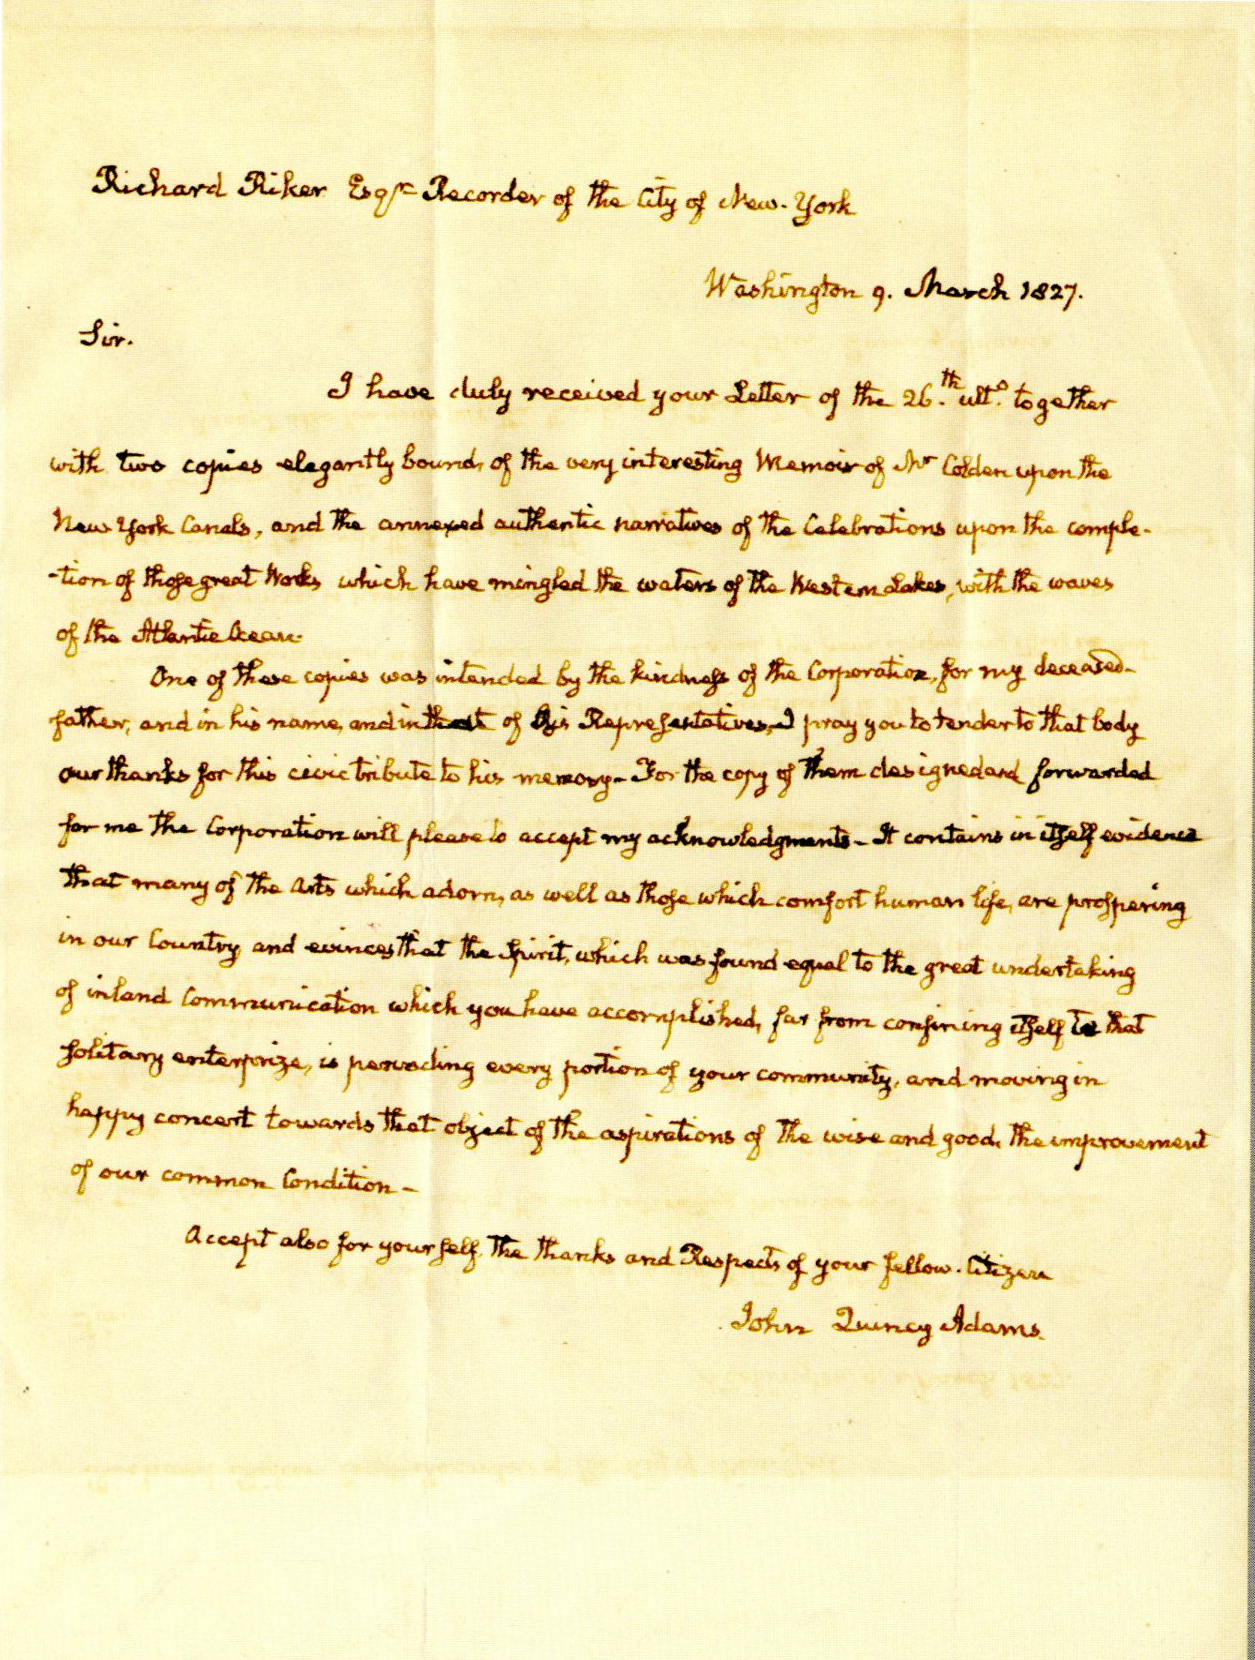 Richard Riker Esqr. Recorder of the City of New-York
Washington 9. March 1827.
Sir.
I have duly received your Letter of the 26.th ulto. together
with two copies elegantly bound, of the very interesting Memoir of Mr Colden upon the
New York Canals, and the annexed authentic narratives of the Celebrations upon the comple-
-tion of those great Works which have mingled the waters of the Western Lakes, with the waves
of the Atlantic Ocean.
One of these copies was intended by the kindness of the Corporation, for my deceased
father, and in his name, and in that of his Representatives, I pray you to tender to that body
our thanks for this civic tribute to his memory - For the copy of them designed and forwarded
for me the Corporation will please to accept my acknowledgments - It contains in itself evidence
that many of the Arts which adorn, as well as those which comfort human life, are prospering
in our Country, and evinces that the Spirit, which was found equal to the great undertaking
of inland Communication which you have accomplished, far from confining itself to that
solitary enterprize, is pervading every portion of your community, and moving in
happy concert towards that object of the aspirations of the wise and good, the improvement
of our common Condition -
Accept also for yourself, the thanks and Respects of your fellow-Citizen
John Quincy Adams.